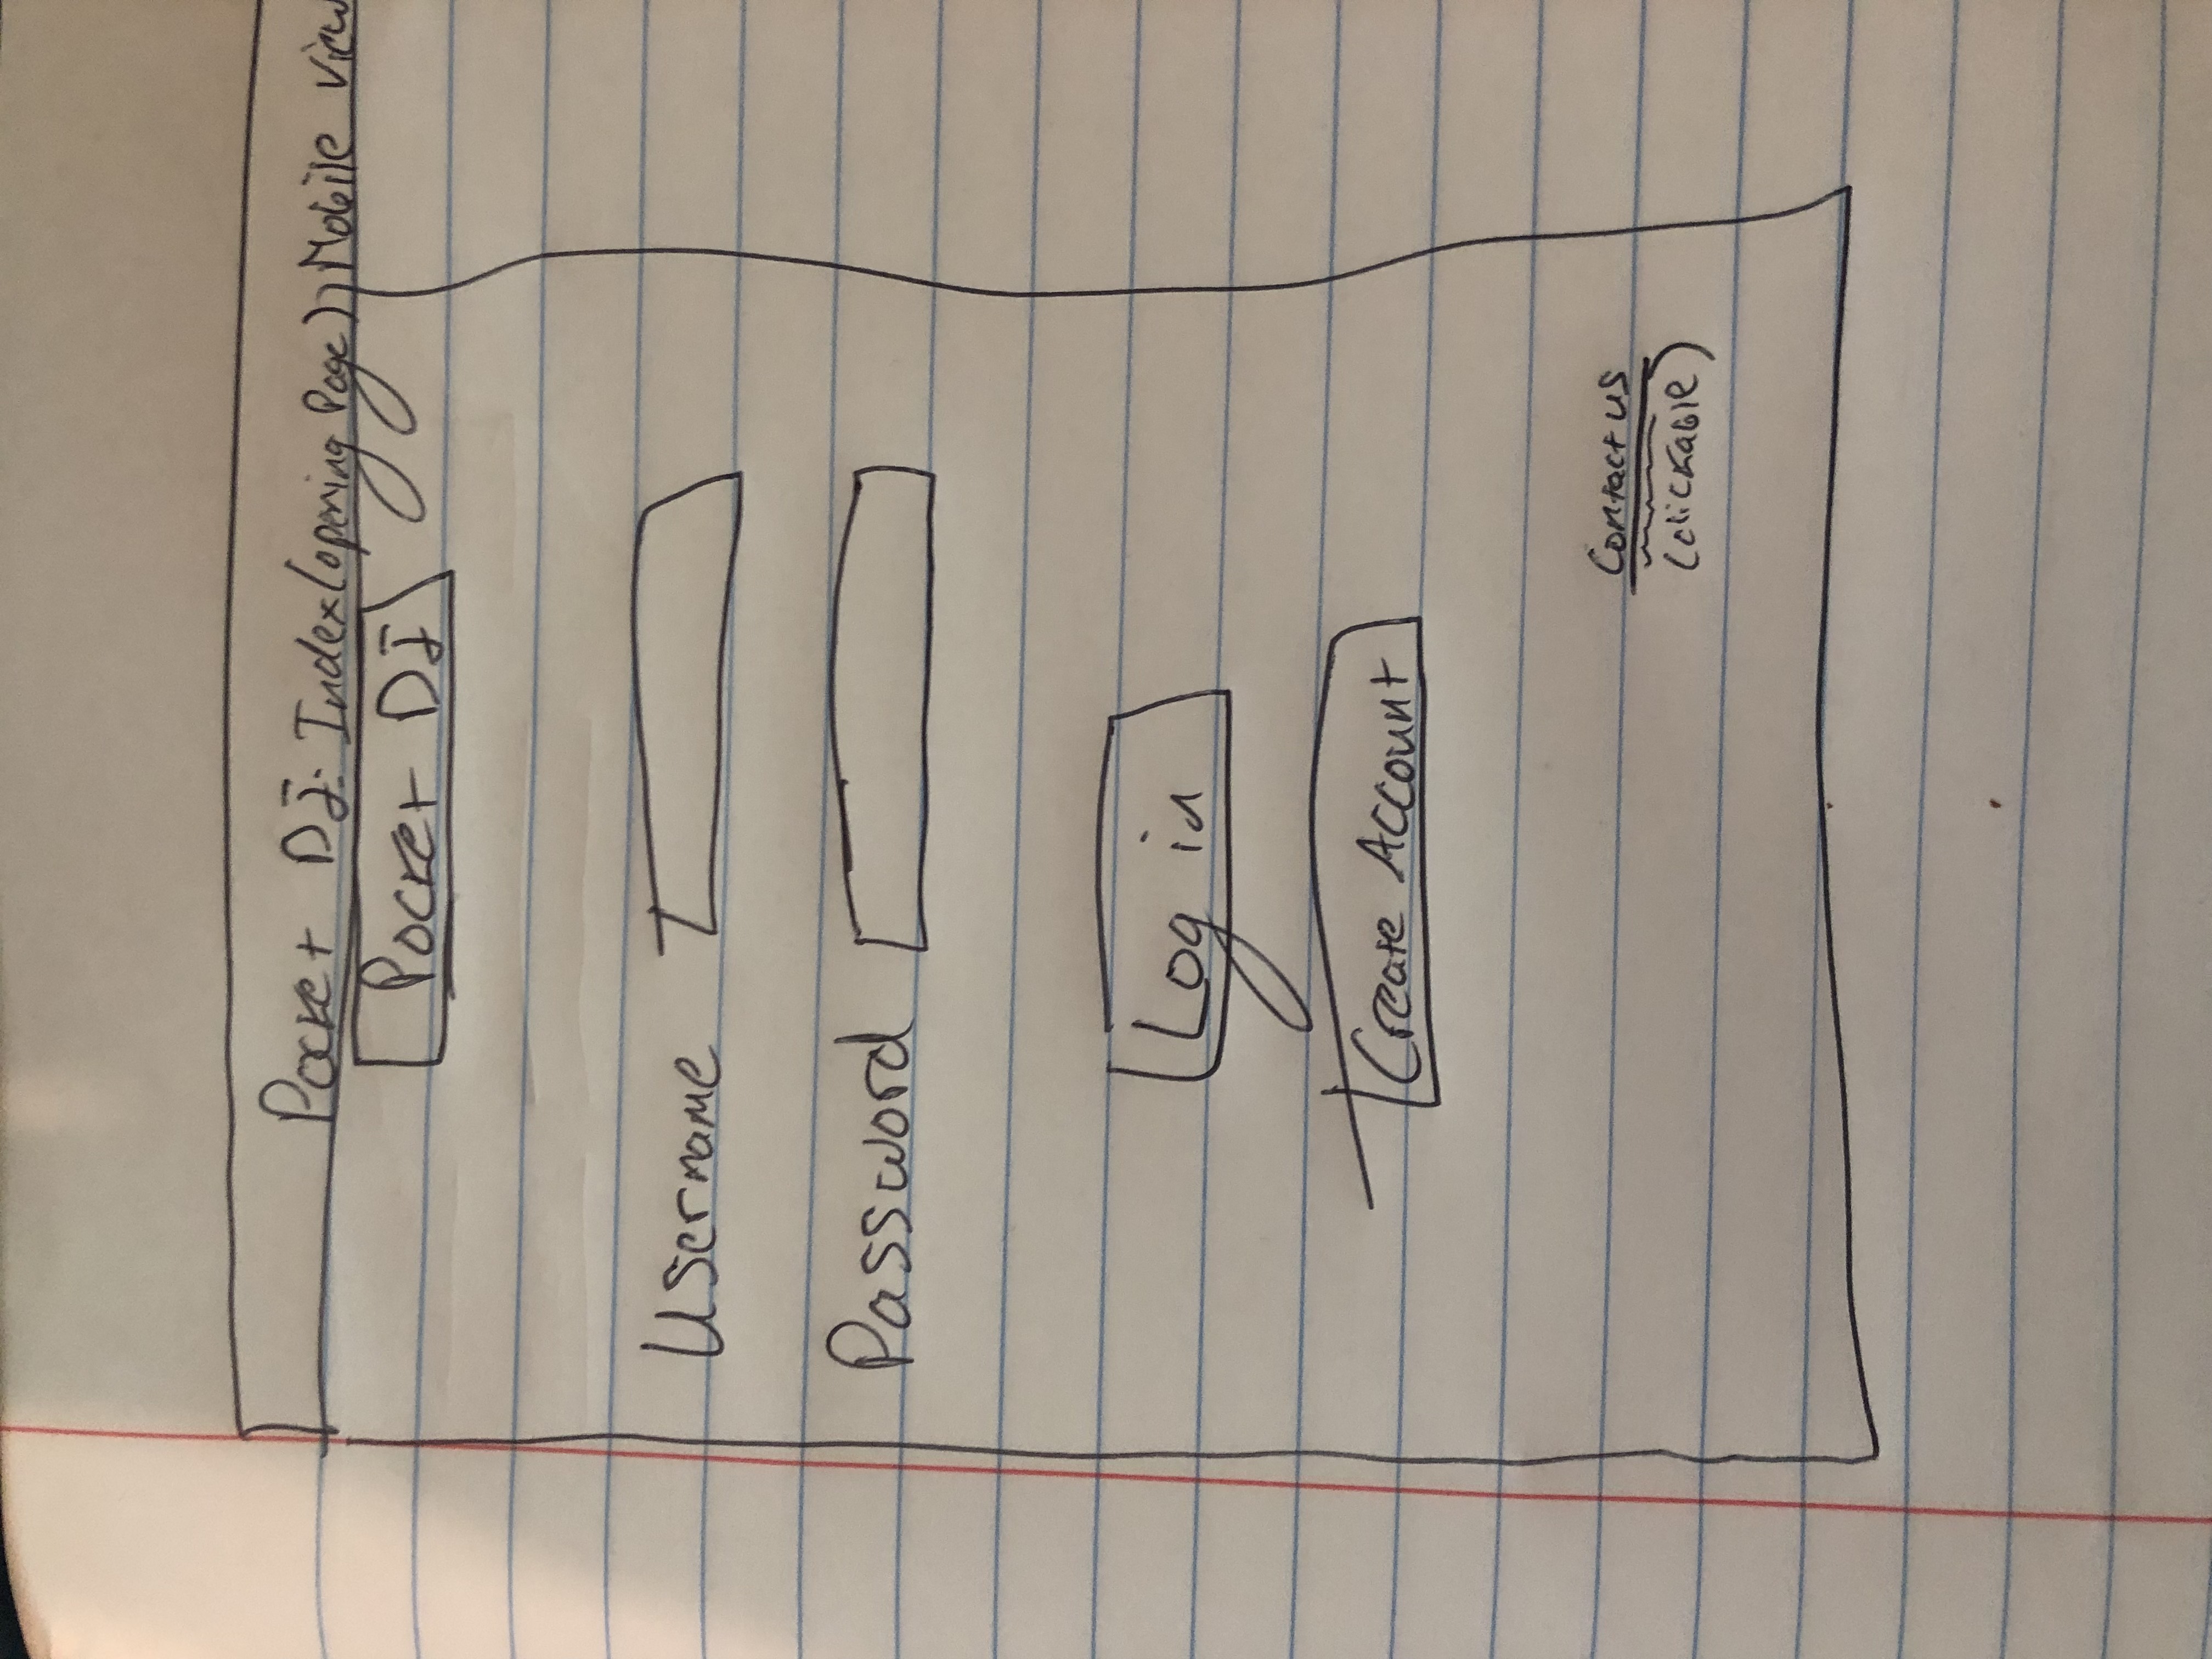 Pocket DJ: Index (opening Page) Mobile View
Pocket DJ
Username
Password
Log in
Create Account
Contact us
(clickable)